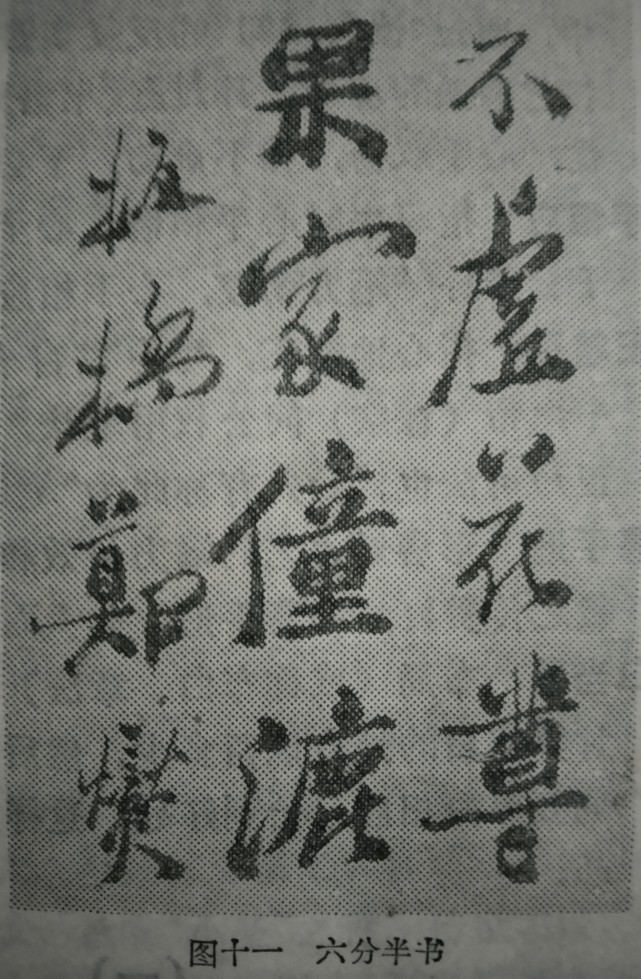 不虛花尊
果家僮漉
板橋鄭燮
图十一 六分半书